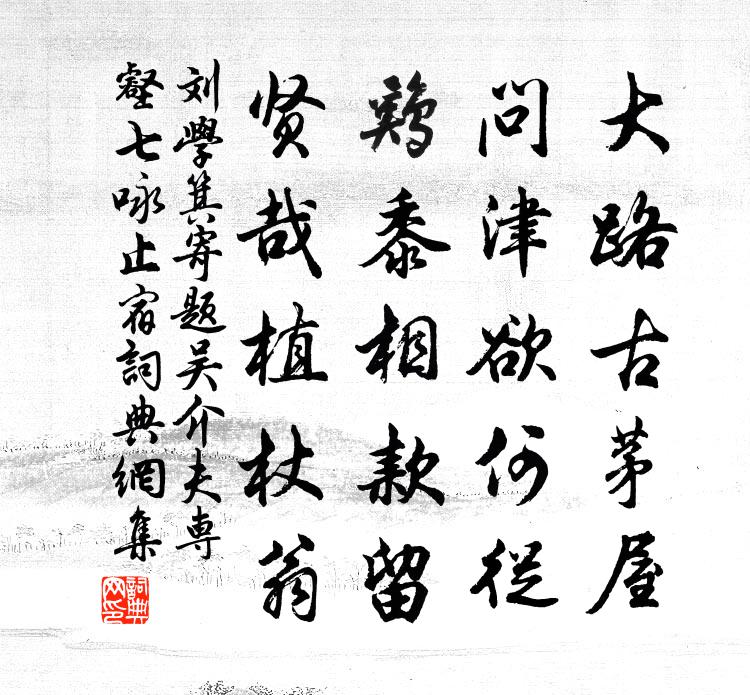 大路古茅屋
問津欲何從
鷄黍相款留
贤哉植杖翁
刘學箕寄題吴介夫専
壑七咏止宿詞典網集
詞典
网印